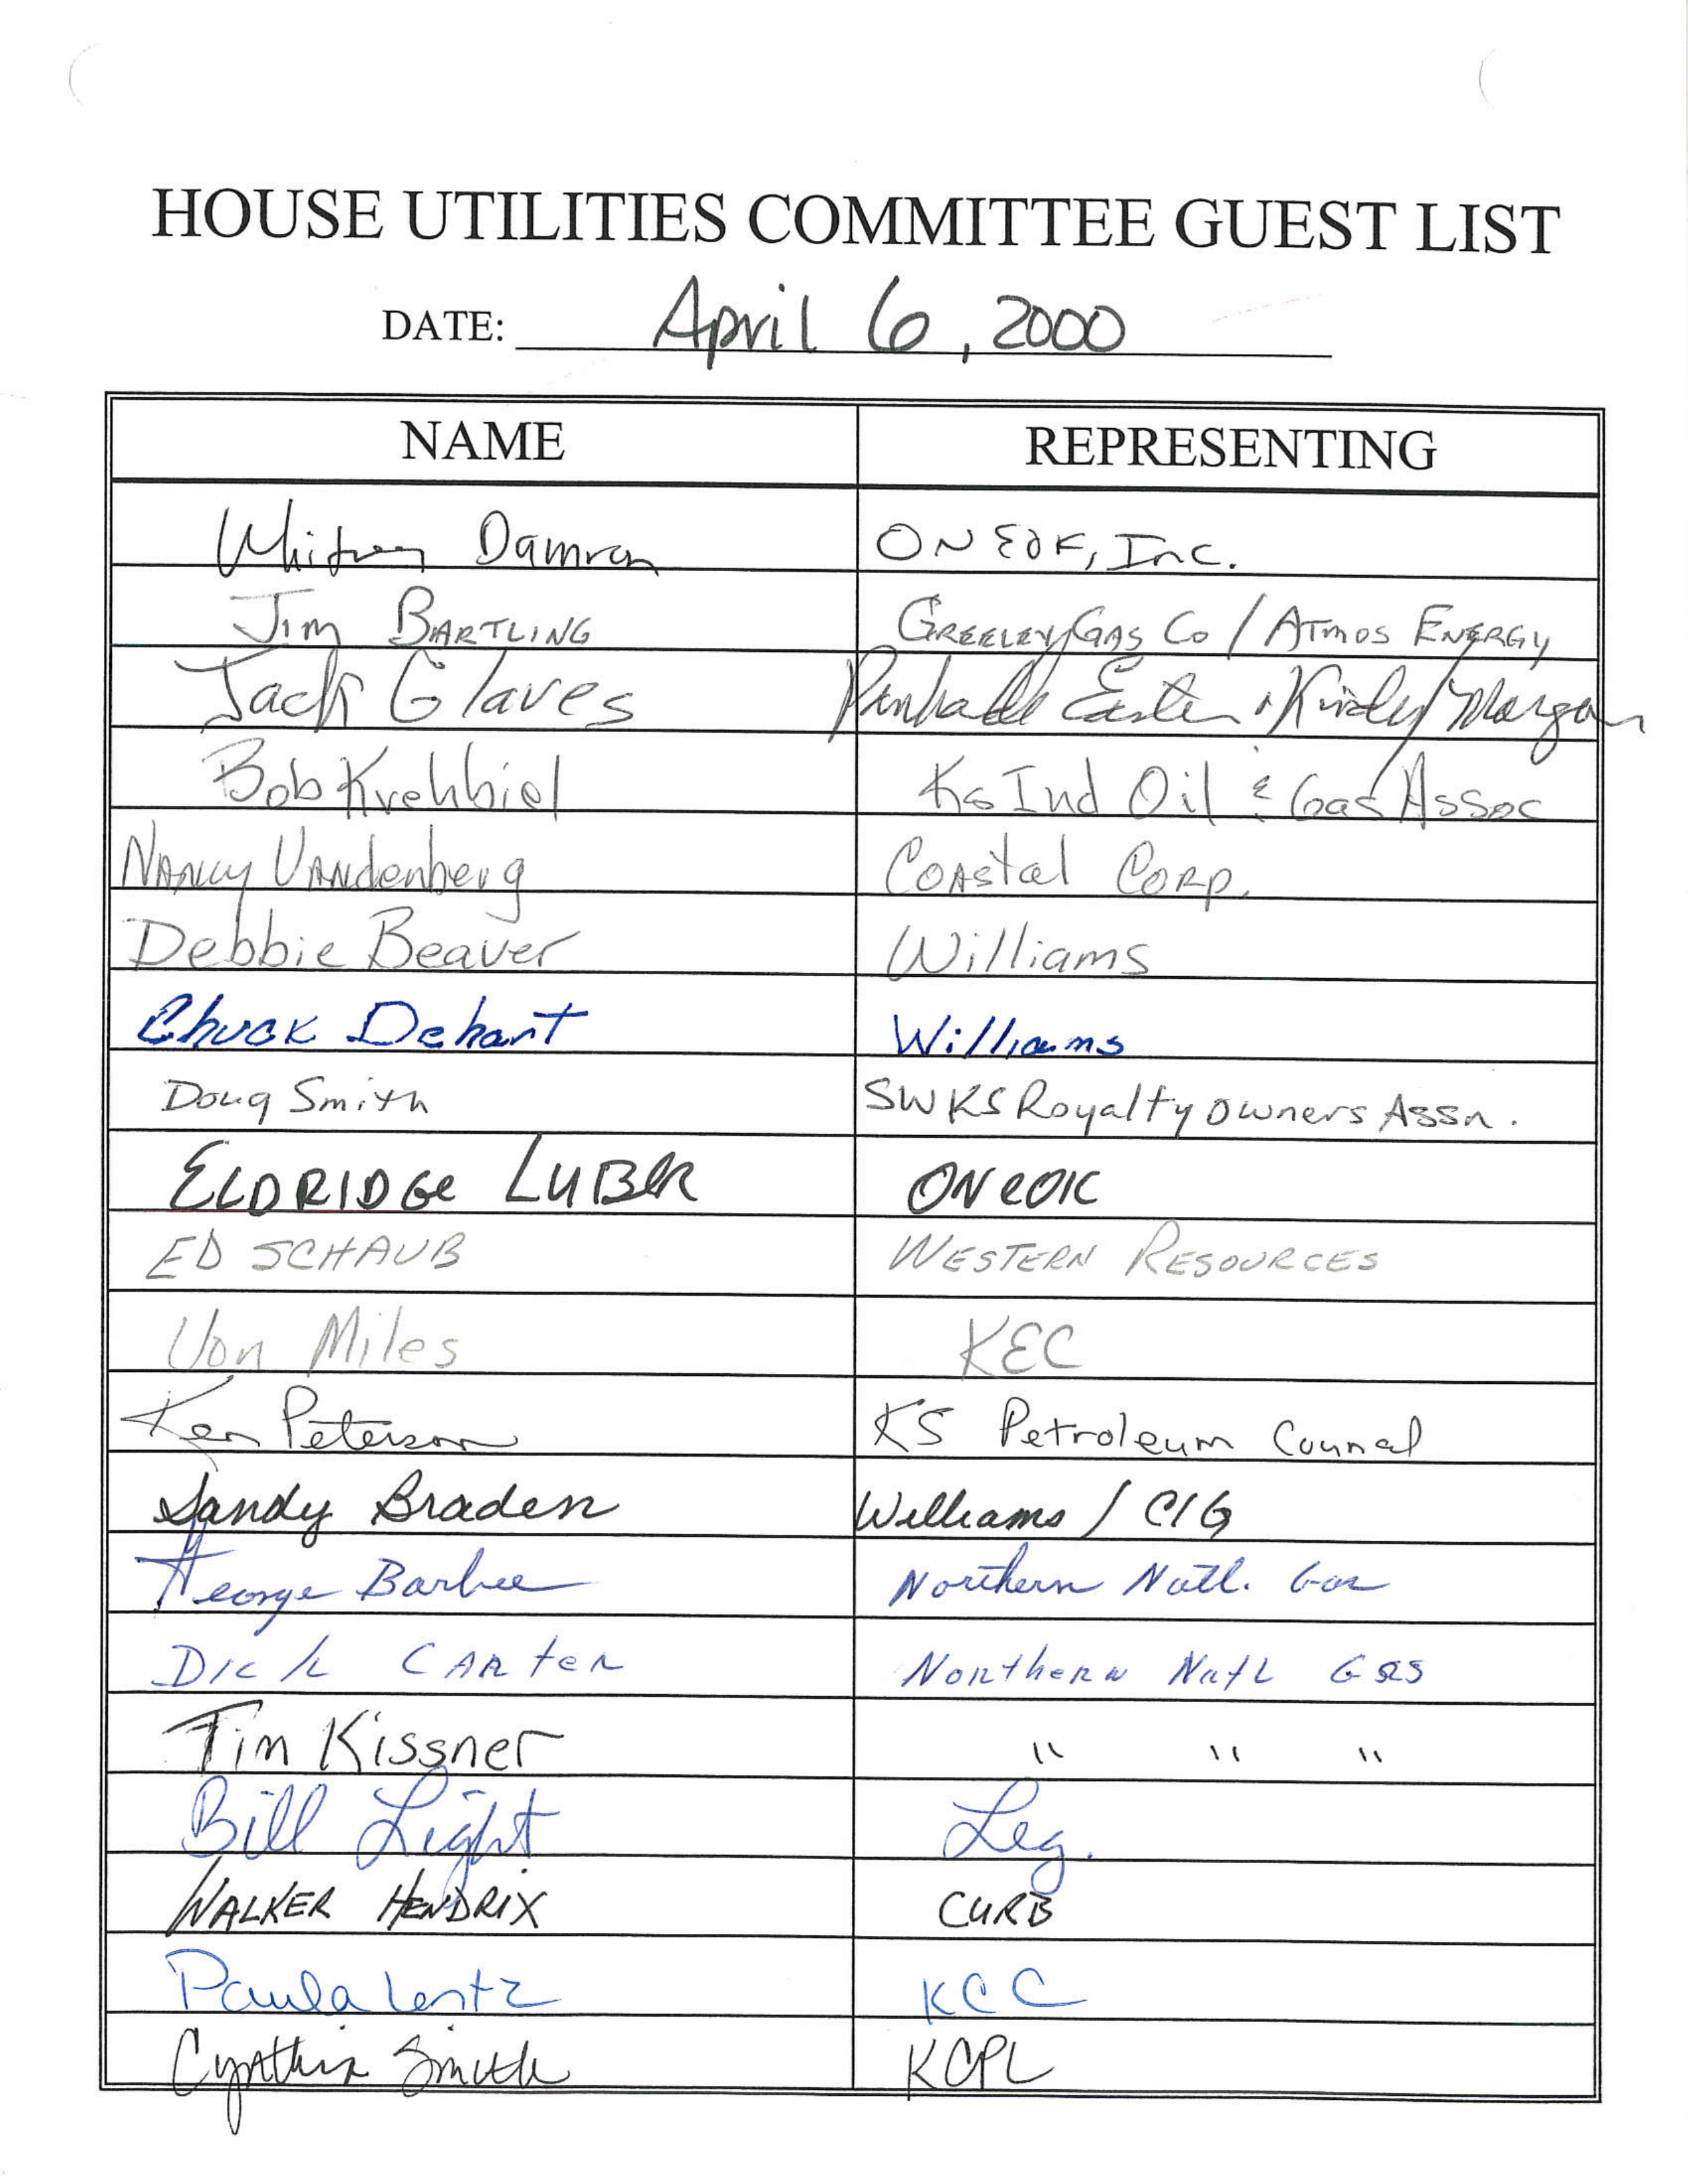 HOUSE UTILITIES COMMITTEE GUEST LIST
DATE: April 6, 2000
NAME REPRESENTING
Whitney Damron ONEOK, Inc.
Jim BARTLING GREELEY GAS Co / ATMOS ENERGY
Jack Glaves Panhandle Eastern & Kinder Morgan
Bob Krehbiel Ks Ind Oil & Gas Assoc
Nancy Vandenberg Coastal Corp.
Debbie Beaver Williams
Chuck Dehart Williams
Doug Smith SWKS Royalty Owners Assn.
ELDRIDGE ONEOK
ED SCHAUB WESTERN RESOURCES
Von Miles KEC
Ken Peterson KS Petroleum Council
Sandy Braden Williams / CIG
George Barbee Northern Natl. Gas
DICK CARTER Northern Natl Gas
Tim Kissner " " "
Bill Light Leg.
WALKER HENDRIX CURB
Paula Lentz KCC
Cynthia Smith KCPL